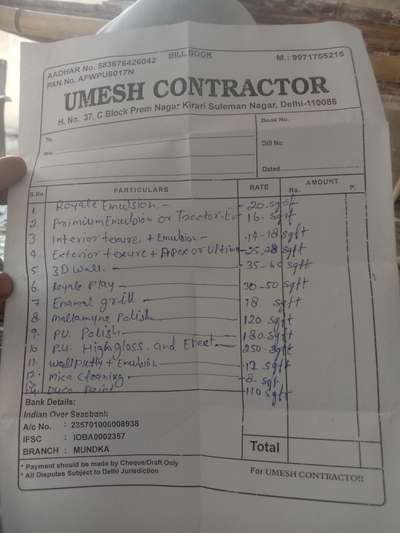 BILL BOOK
AADHAR No. 583678426042
M.: 9971755215
PAN No. AFWPU6017N
UMESH CONTRACTOR
H. No. 37, C Block Prem Nagar Kirari Suleman Nagar, Delhi-110086
To
M/s
Book No.
Bill No.
Dated
S.No. PARTICULARS RATE AMOUNT
Rs. P.
1 Royale Emulsion - 20. sqft
2 Primium Emulsion or Tractor-Em 16. sqft
3 Interior texure + Emulsion - 14-18 sqft
4 Exterior texure + Apex or Ultima 25,28 sqft
5 3D wall. sqft
6. Royale Play sqft
7 Enamal grill 18. sqft
8 Mallamyne Polish 120 sqft
9. PU. Polish 180 sqft
10 P.U. High gloss. and 250 sqft
11. Wallputty + Emulsion 12 sqft
12. Mica Cleaning 8. sqt
Duco Paint 110 sqft
Bank Details:
Indian Over Seasbank
A/c No. : 235701000008938
IFSC : IOBA0002357
BRANCH : MUNDKA
Total
* Payment should be made by Cheque/Draft Only
* All Disputes Subject to Delhi Jurisdiction
For UMESH CONTRACTOR